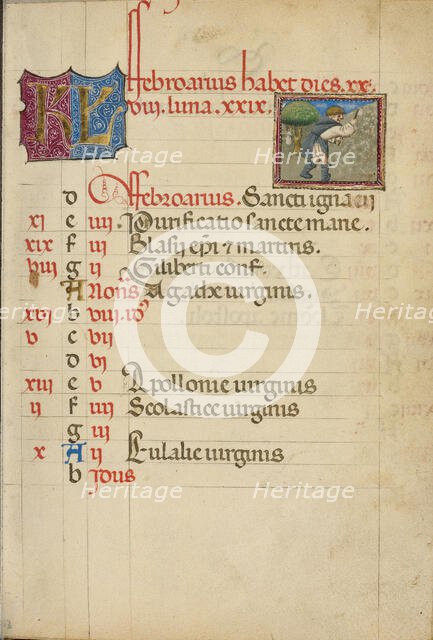 KL
ffebroarius habet dies. xx
viii. luna. xxix.
d ffebroarius. Sancti ignacii
xi e iiii Purificatio sancte marie.
xix f iii Blasij epi ⁊ martiris.
viii g ii Giliberti conf.
A Nonis Agathe virginis.
xvi b viii. id'
v c vii
d vi
xiii e v Apollonie virginis
ii f iiii Scolastice virginis
g iii
x A ii Eulalie virginis
b idus
Heritage Heritage
Heritage Heritage
Heritage Heritage